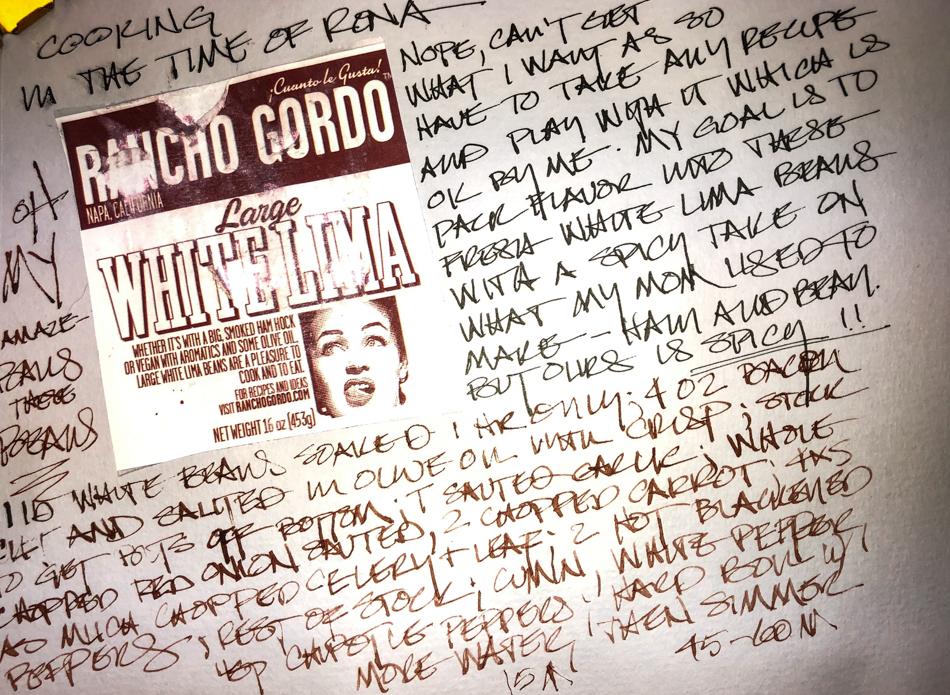 COOKING
IN THE TIME OF RONA
NOPE, CAN'T GET
WHAT I WANT AS SO
HAVE TO TAKE ANY RECIPE
AND PLAY WITH IT WHICH IS
OK BY ME. MY GOAL IS TO
PACK FLAVOR INTO THESE
FRESH WHITE LIMA BEANS
WITH A SPICY TAKE ON
WHAT MY MOM USED TO
MAKE - HAM AND BEAN.
BUT OURS IS SPICY!!
¡Cuanto le Gusta!
RANCHO GORDO
TM
NAPA, CALIFORNIA
Large
WHITE LIMA
WHETHER IT'S WITH A BIG, SMOKED HAM HOCK
OR VEGAN WITH AROMATICS AND SOME OLIVE OIL,
LARGE WHITE LIMA BEANS ARE A PLEASURE TO
COOK AND TO EAT.
FOR RECIPES AND IDEAS
VISIT RANCHOGORDO.COM
NET WEIGHT 16 oz (453g)
OH
MY
AMAZE-
BEANS
THESE
BEANS
1 lb WHITE BEANS SOAKED 1 HR ONLY; 4 OZ BACON
CUT AND SAUTED IN OLIVE OIL UNTIL CRISP; STOCK
TO GET BITS OFF BOTTOM; T SAUTED GARLIC; WHOLE
CHOPPED RED ONION SAUTED, 2 CHOPPED CARROT; 4XS
AS MUCH CHOPPED CELERY + LEAF. 2 HOT BLACKENED
PEPPERS; REST OF STOCK; CUMIN, WHITE PEPPER,
CHIPOTLE PEPPERS, HARD BOIL W/
MORE WATER 15 M THEN SIMMER
45-60 M